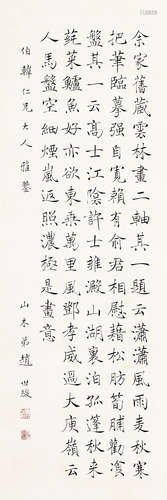 余家舊藏雲林畫二軸其一題云瀟瀟風雨麦秋寒
把筆臨摹强自寬賴有俞君相慰藉松肪筍脯勸湌
盤其一云高士江陰許士雍澱山湖裏泊孤蓬秋来
蓴菜鱸魚好亦欲東乘萬里風鄧孝威過大庾嶺云
人馬盤空細煙嵐返照濃極是畫意
伯韓仁兄大人雅鑒
山木弟趙世駿